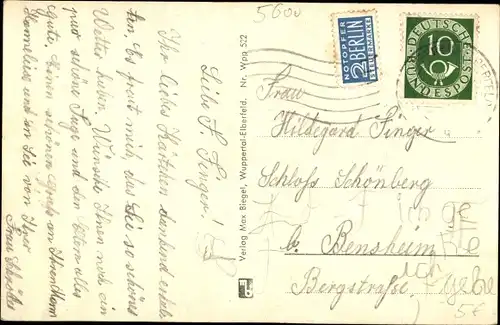 5600
Liebe F. Finger!
Ihr liebes Kärtchen dankend erhal-
ten. Es freut mich, das Sie so schönes
Wetter haben. Wünsche Ihnen noch ein
paar schöne Tage und den Eltern alles
gute. Ihnen schönen Gruß an Ihren Herrn
Gemahl und an Sie von Ihrer
Frau
Verlag Max Biegel, Wuppertal-Elberfeld. Nr. Wpp 522
NOTOPFER
2 BERLIN
STEUERMARKE
DEUTSCHE
10
BUNDESPOST
Frau
Hildegard Finger
Schloss Schönberg
b. Bensheim
Bergstraße
5€